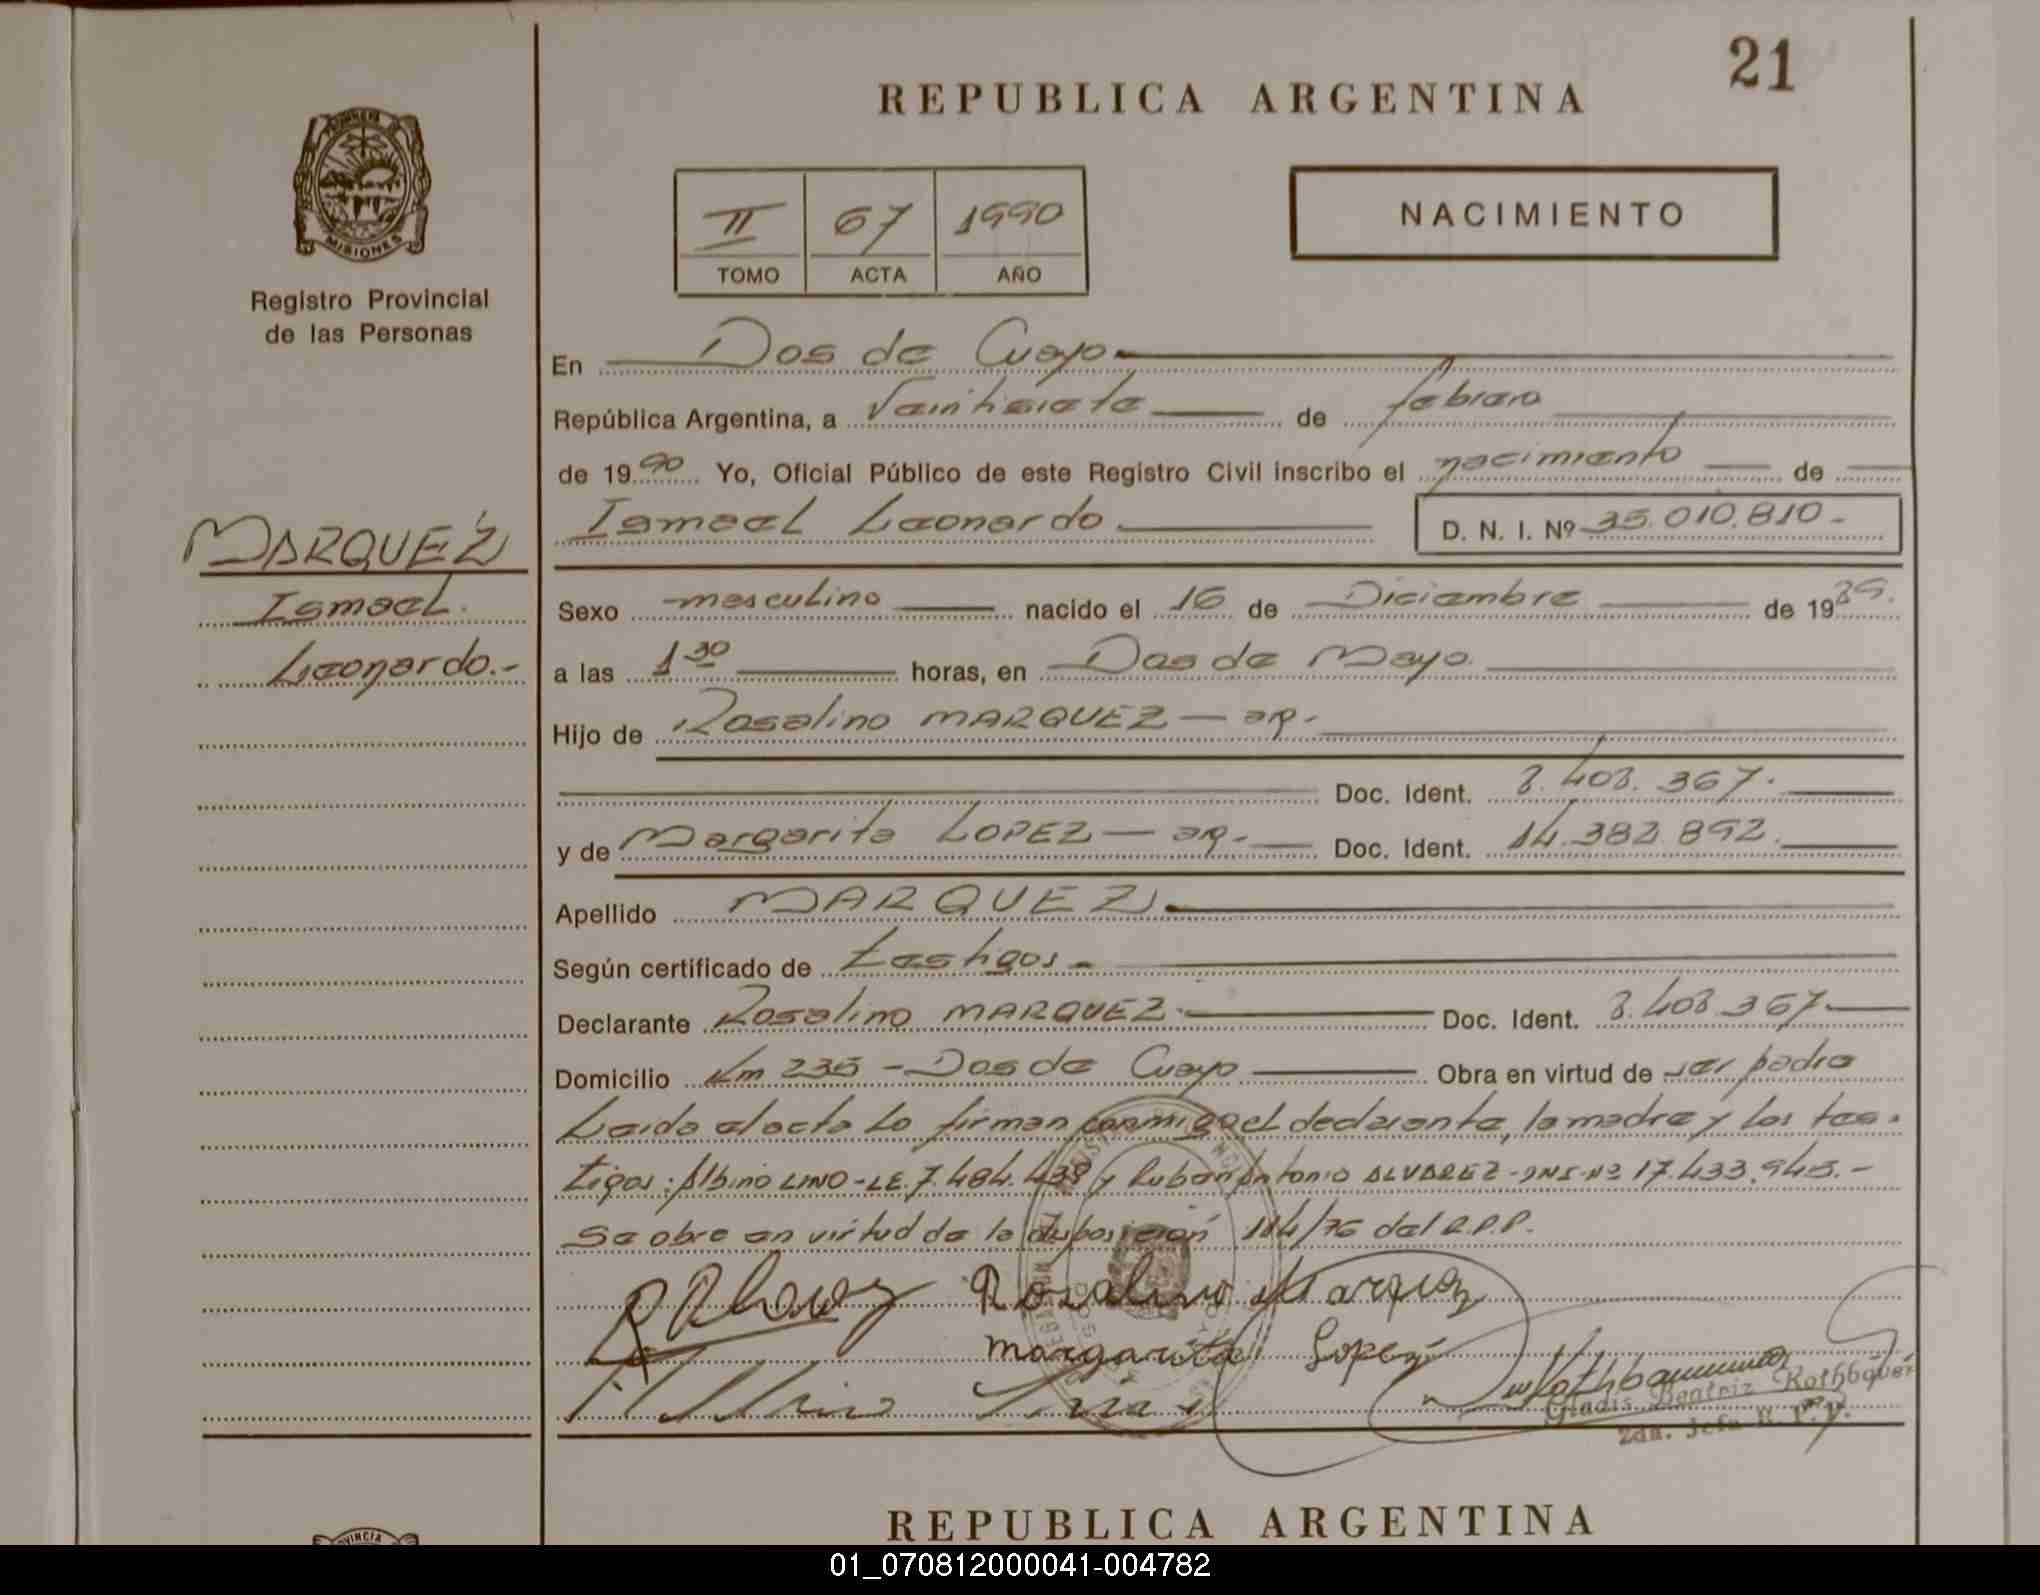 21
REPUBLICA ARGENTINA
PROVINCIA DE
MISIONES
Registro Provincial
de las Personas
II 67 1990
TOMO ACTA AÑO
NACIMIENTO
En Dos de Cuayo
República Argentina, a Veintisiete de febrero
de 1990 Yo, Oficial Público de este Registro Civil inscribo el nacimiento de
Ismael Leonardo. D. N. I. Nº 35.010.810-
MARQUEZ
Ismael.
Leonardo.-
Sexo masculino nacido el 16 de Diciembre de 1989.
a las 1 30 horas, en Dos de Mayo.
Hijo de Rosalino MARQUEZ — ar.
Doc. Ident. 8.408.367.
y de Margarita LOPEZ — ar. Doc. Ident. 14.382.892.
Apellido MARQUEZ.
Según certificado de testigos.
Declarante Rosalino MARQUEZ Doc. Ident. 8.408.367
Domicilio Km 235 - Dos de Cuayo Obra en virtud de ser padre
Leida el acta lo firman conmigo el declarante, la madre y los tes-
tigos: Albino LINO-LE.7.484.438 y Ruben Antonio ALVAREZ-DNI-Nº 17.433.945.-
Se obra en virtud de la disposición 114/76 del R.P.P.
Rosalino Marquez
Margarita Lopez
Albino Lino
Gladis Beatriz
2da. Jefa R. P. P.
REPUBLICA ARGENTINA
01_070812000041-004782